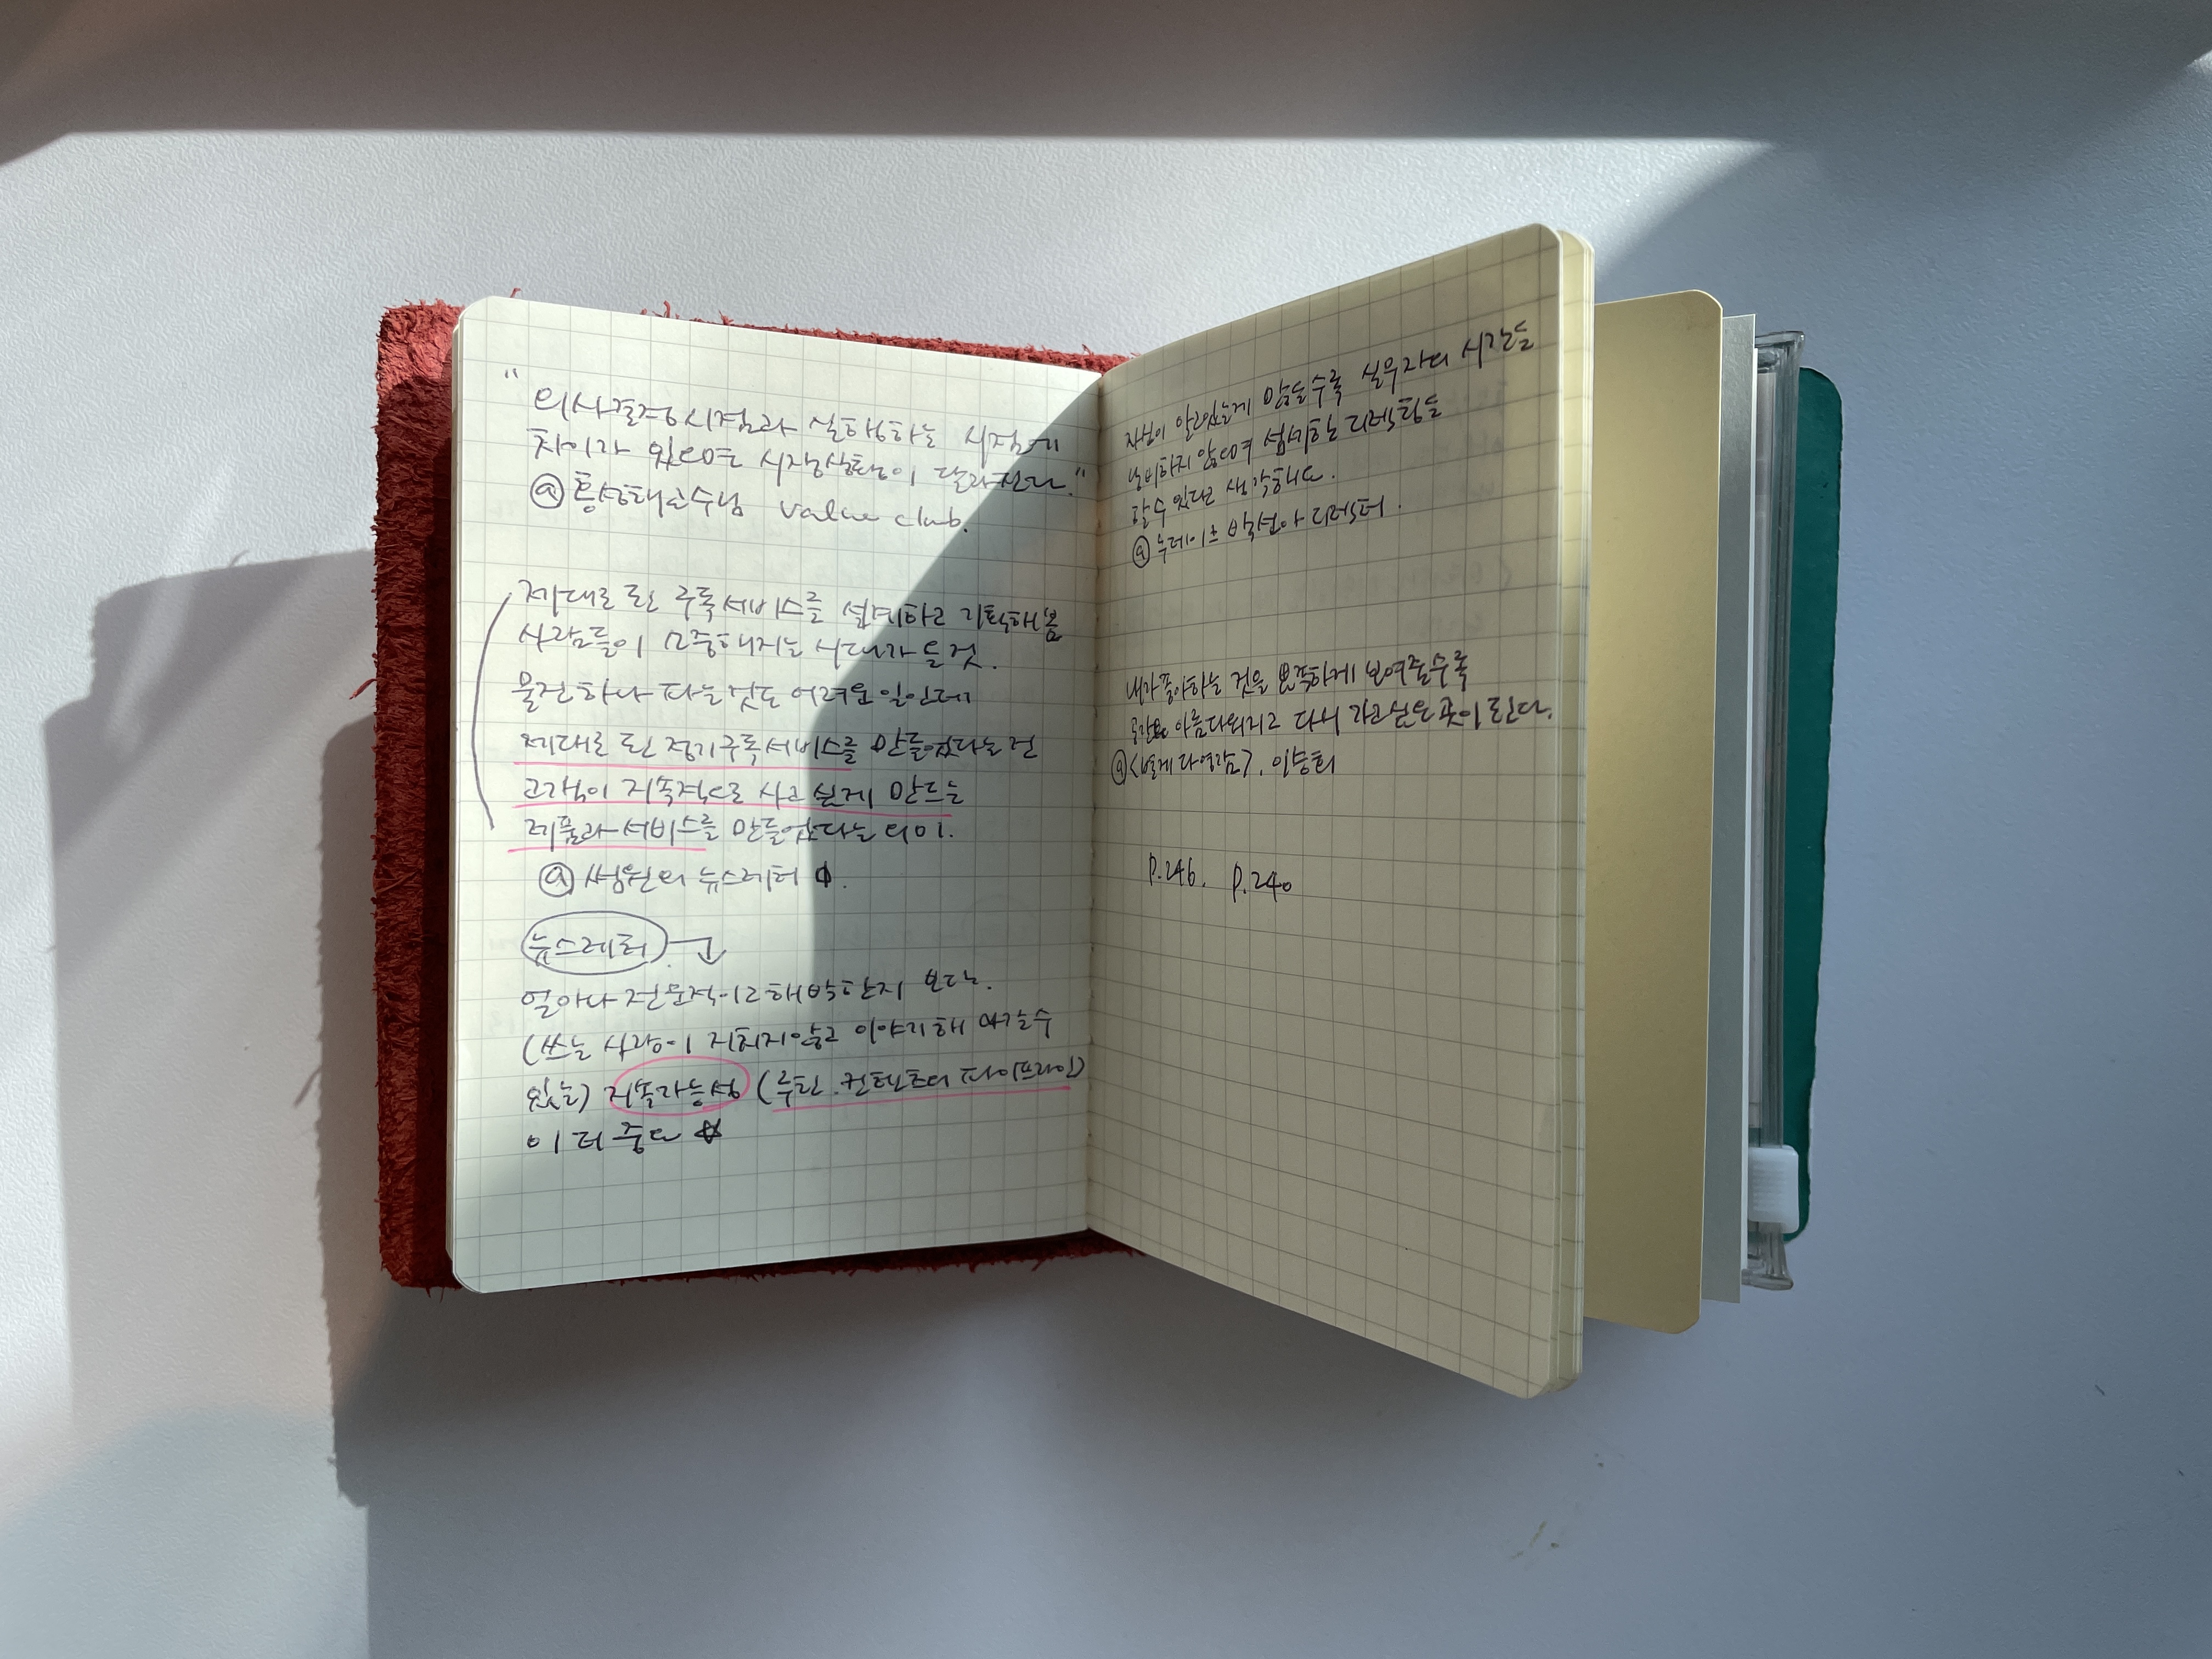 "의사결정 시점과 실행하는 시점에
차이가 있으면 시장상황이 달라진다."
@홍성태교수님 value club.
제대로 된 구독서비스를 설계하고 기획해 봄
사람들이 소중해지는 시대가 올 것.
물건 하나 파는 것도 어려운 일인데
제대로 된 정기구독서비스를 만들었다는 건
고객이 지속적으로 사고 싶게 만드는
제품과 서비스를 만들었다는 의미.
@썸원의 뉴스레터
뉴스레터
얼마나 전문적이고 해박한지 보다는.
(쓰는 사람이 지치지 않고 이야기해 나갈 수
있는) 지속가능성 (루틴. 컨텐츠의 파이프라인)
이 더 중요
자신이 알고있는게 많을수록 실무자의 시간을
낭비하지 않으며 섬세한 디렉팅을
할 수 있다고 생각해요.
@누데이크 박선아 디렉터.
내가 좋아하는 것을 뾰족하게 보여줄수록
공간은 아름다워지고 다시 가고싶은 곳이 된다.
@<별게 다 영감>. 이승희
p.246. p.240